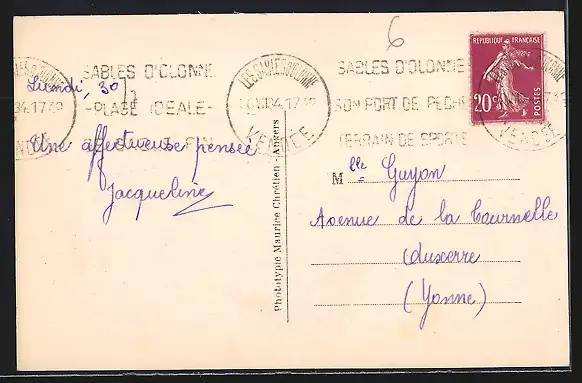 6
SABLES D'OLONNE
-PLAGE IDEALE-
LES SABLES D'OLONNE
VENDÉE
SABLES D'OLONNE
SON PORT DE PECHE
TERRAIN DE SPORTS
REPUBLIQUE FRANÇAISE
20c
POSTES
VENDÉE
Lundi, 30
Une affectueuse pensée
Jacqueline
Phototypie Maurice Chrétien - Angers
Mlle Guyon
Avenue de la Tournelle
Auxerre
(Yonne)